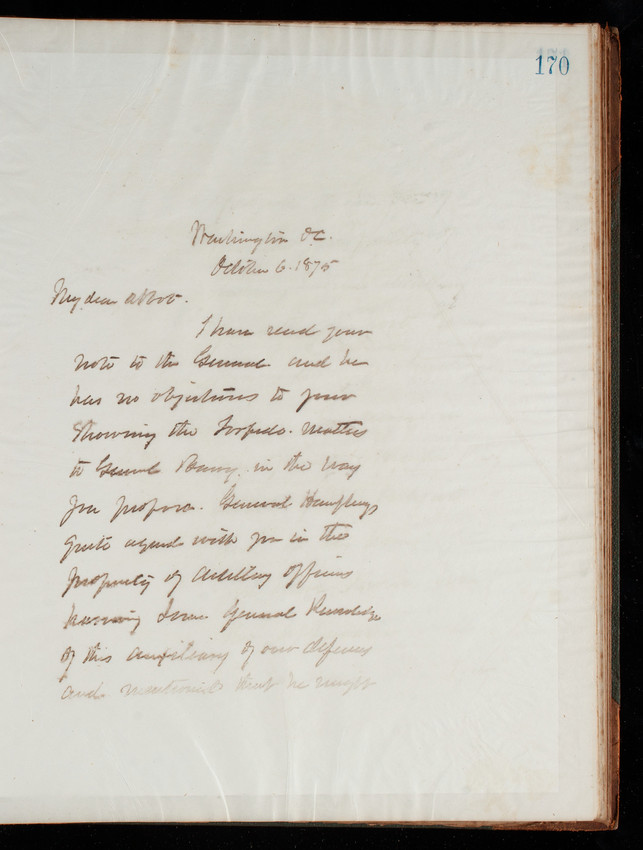 170
Washington D.C.
October 6. 1875
My dear Abbot.
I have read your
note to the General and he
has no objections to your
showing the Torpedo matters
to General Barry in the way
you propose. General Humphreys
quite agrees with you in the
propriety of Artillery officers
having some general knowledge
of this auxiliary of our defenses
and mentioned that he might